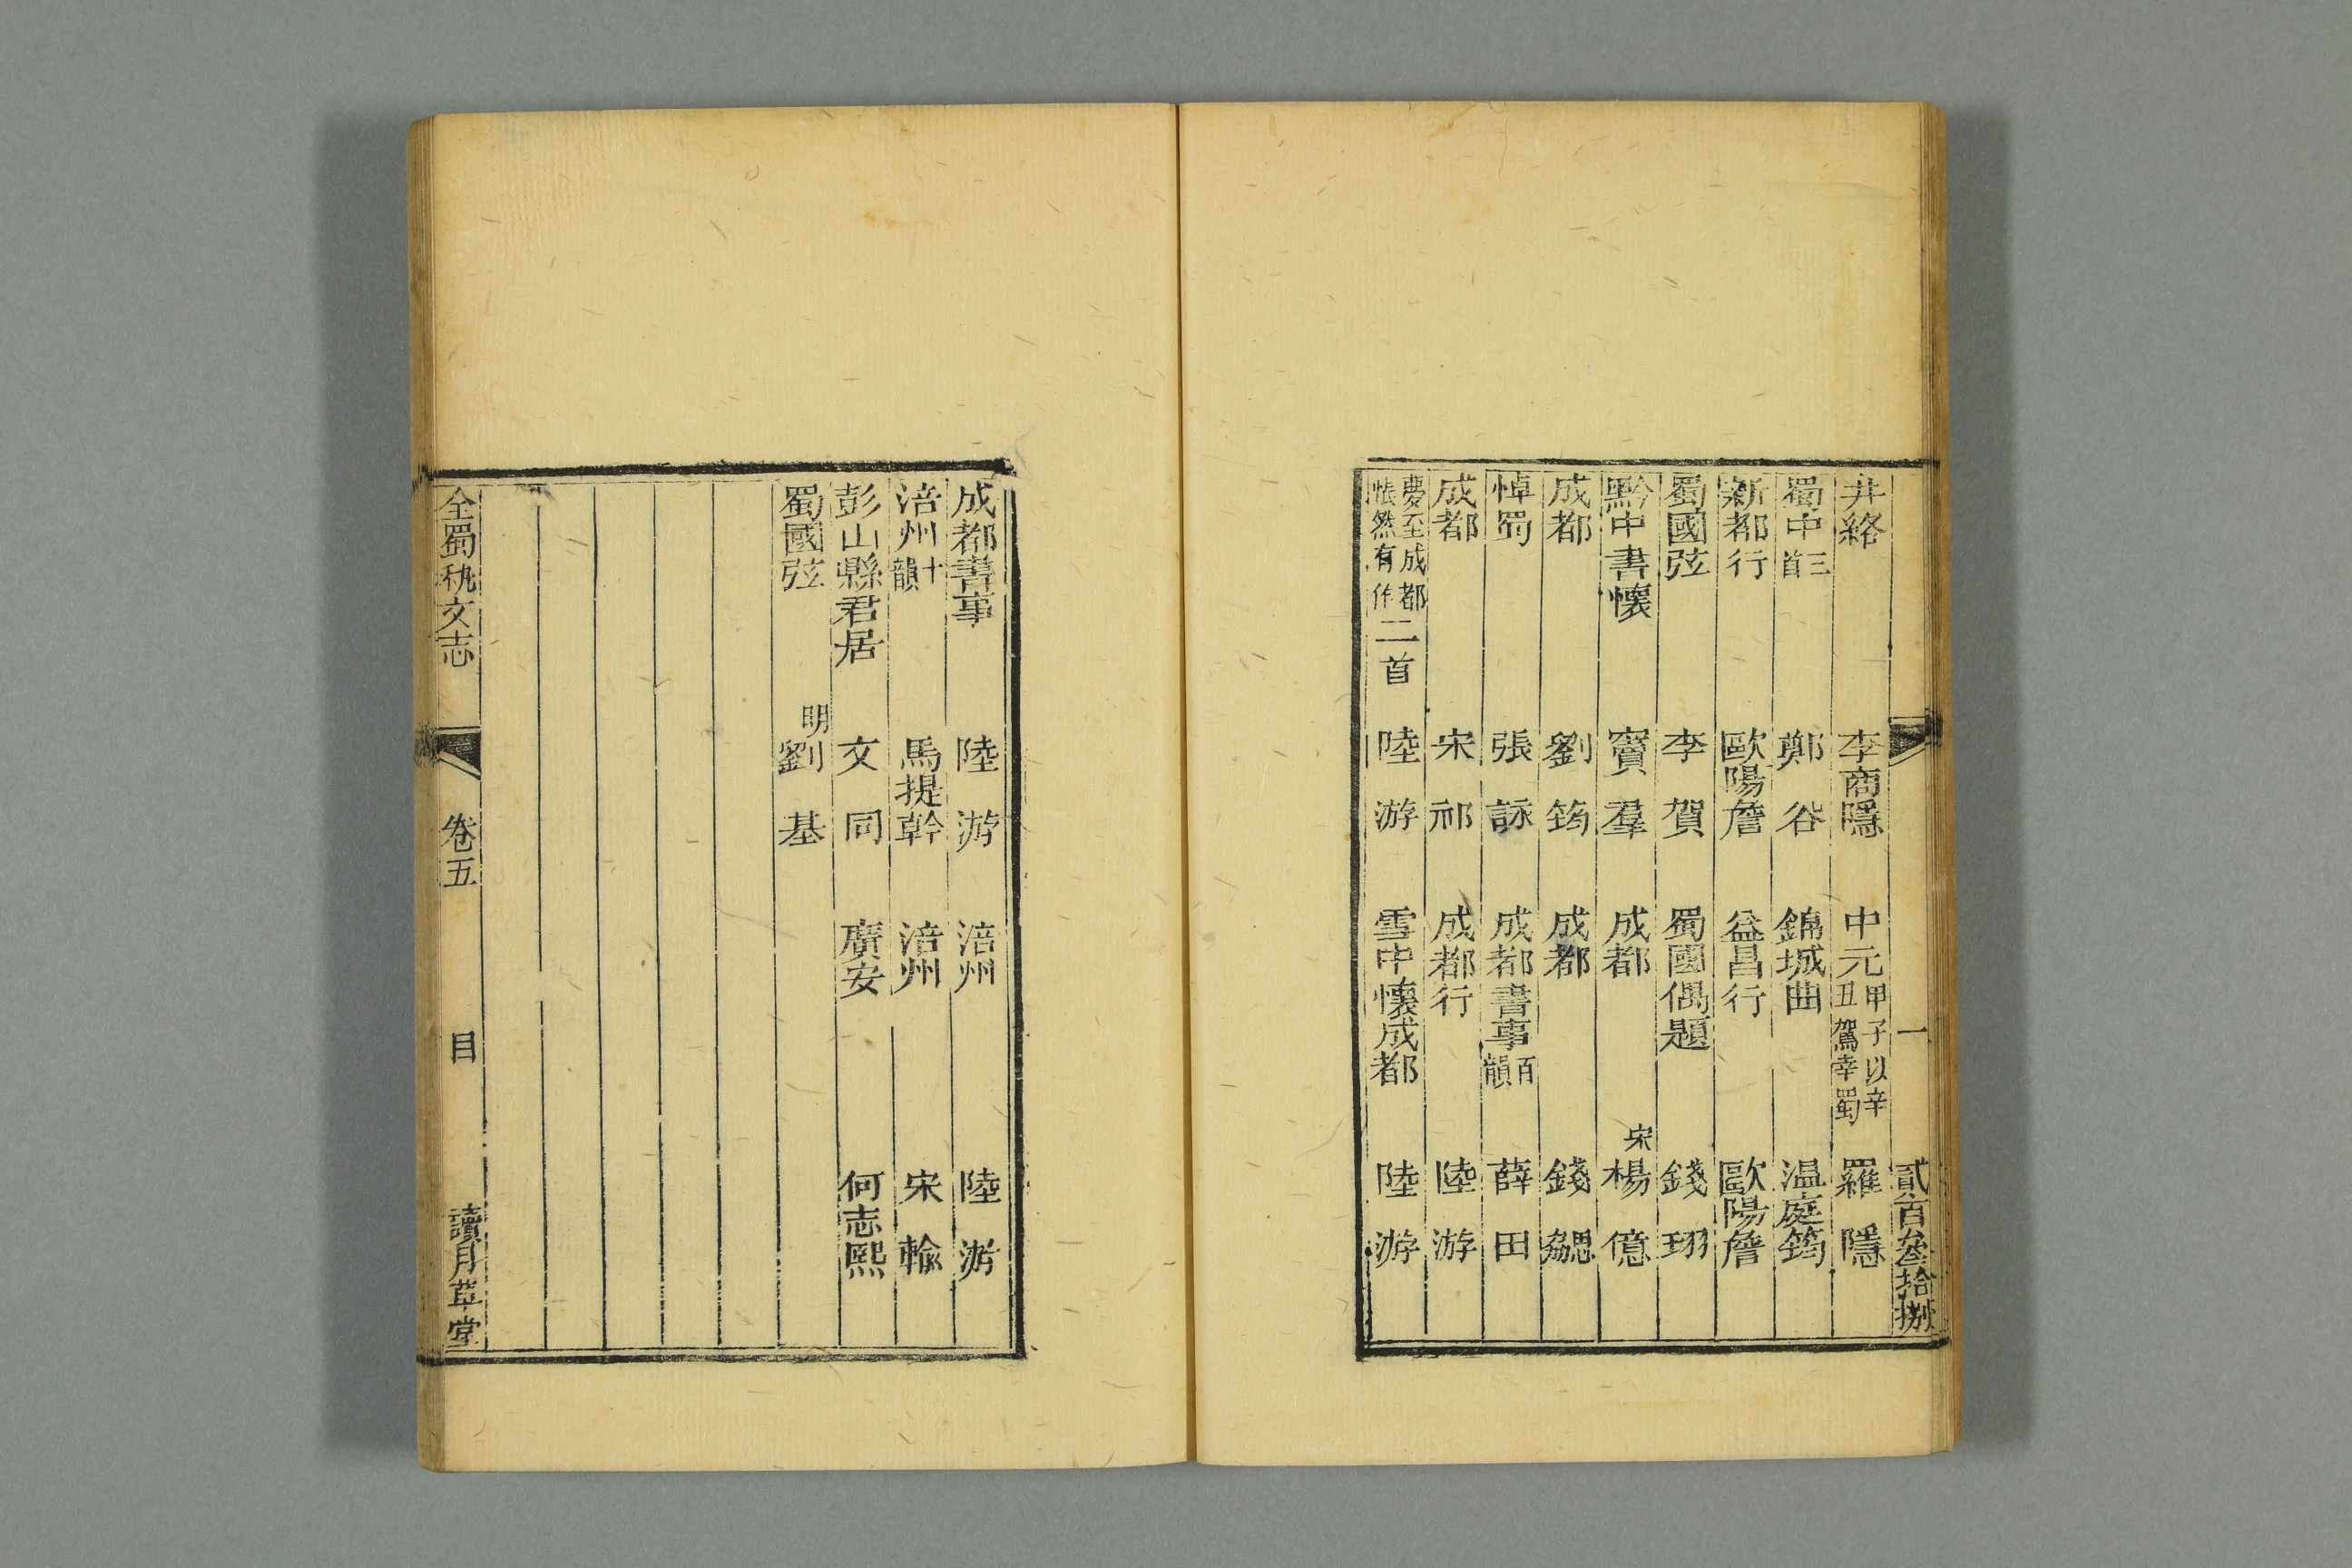 一　貳百叁拾捌
井絡　李商隱　中元甲子以辛丑駕幸蜀　羅隱
蜀中三首　鄭谷　錦城曲　温庭筠
新都行　歐陽詹　益昌行　歐陽詹
蜀國弦　李賀　蜀國偶題　錢珝
黔中書懷　竇羣　成都　宋楊億
成都　劉筠　成都　錢勰
悼蜀　張詠　成都書事百韻　薛田
成都　宋祁　成都行　陸游
夢至成都悵然有作二首　陸游　雪中懷成都　陸游
成都書事　陸游　涪州　陸游
涪州十韻　馬提幹　涪州　宋輸
彭山縣君居　文同　廣安　何志熙
蜀國弦　明劉基
全蜀秇文志　卷五　目　讀月草堂